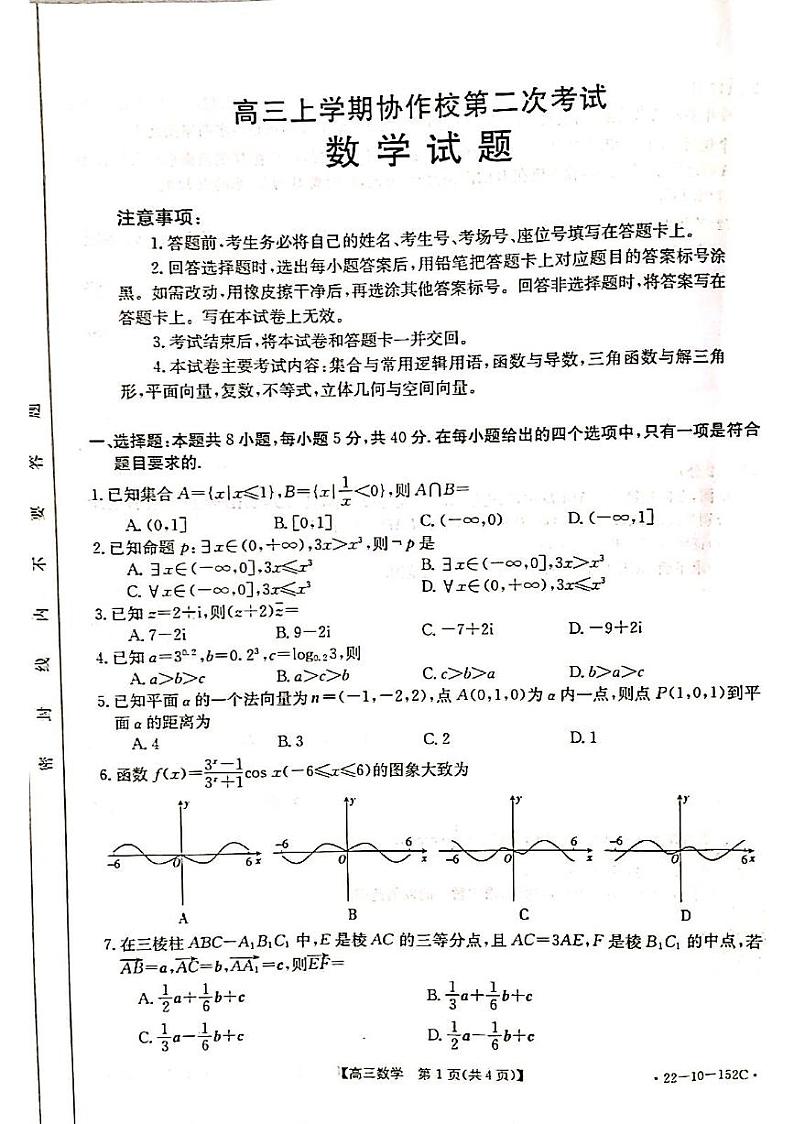 高三上学期协作校第二次考试
数学试题
注意事项:
1.答题前,考生务必将自己的姓名、考生号、考场号、座位号填写在答题卡上。
2.回答选择题时,选出每小题答案后,用铅笔把答题卡上对应题目的答案标号涂
黑。如需改动,用橡皮擦干净后,再选涂其他答案标号。回答非选择题时,将答案写在
答题卡上。写在本试卷上无效。
3.考试结束后,将本试卷和答题卡一并交回。
4.本试卷主要考试内容:集合与常用逻辑用语,函数与导数,三角函数与解三角
形,平面向量,复数,不等式,立体几何与空间向量。
一、选择题:本题共8小题,每小题5分,共40分.在每小题给出的四个选项中,只有一项是符合
题目要求的.
1.已知集合A={x|x≤1},B={x|1/x<0},则A∩B=
A.(0,1] B.[0,1] C.(-∞,0) D.(-∞,1]
2.已知命题p:∃x∈(0,+∞),3x>x³,则¬p是
A.∃x∈(-∞,0],3x≤x³ B.∃x∈(-∞,0],3x>x³
C.∀x∈(-∞,0],3x≤x³ D.∀x∈(0,+∞),3x≤x³
3.已知z=2+i,则(z+2)z̄=
A.7-2i B.9-2i C.-7+2i D.-9+2i
4.已知a=3^0.2,b=0.2³,c=log₀.₂3,则
A.a>b>c B.a>c>b C.c>b>a D.b>a>c
5.已知平面α的一个法向量为n=(-1,-2,2),点A(0,1,0)为α内一点,则点P(1,0,1)到平
面α的距离为
A.4 B.3 C.2 D.1
6.函数f(x)=(3ˣ-1)/(3ˣ+1)cos x(-6≤x≤6)的图象大致为
y -6 O 6 x y -6 O 6 x y -6 O 6 x y -6 O 6 x
A B C D
7.在三棱柱ABC-A₁B₁C₁中,E是棱AC的三等分点,且AC=3AE,F是棱B₁C₁的中点,若
AB=a,AC=b,AA₁=c,则EF=
A.1/2a+1/6b+c B.1/3a+1/6b+c
C.1/3a-1/6b+c D.1/2a-1/6b+c
【高三数学 第1页(共4页)】 ·22-10-152C·
密封线内不要答题